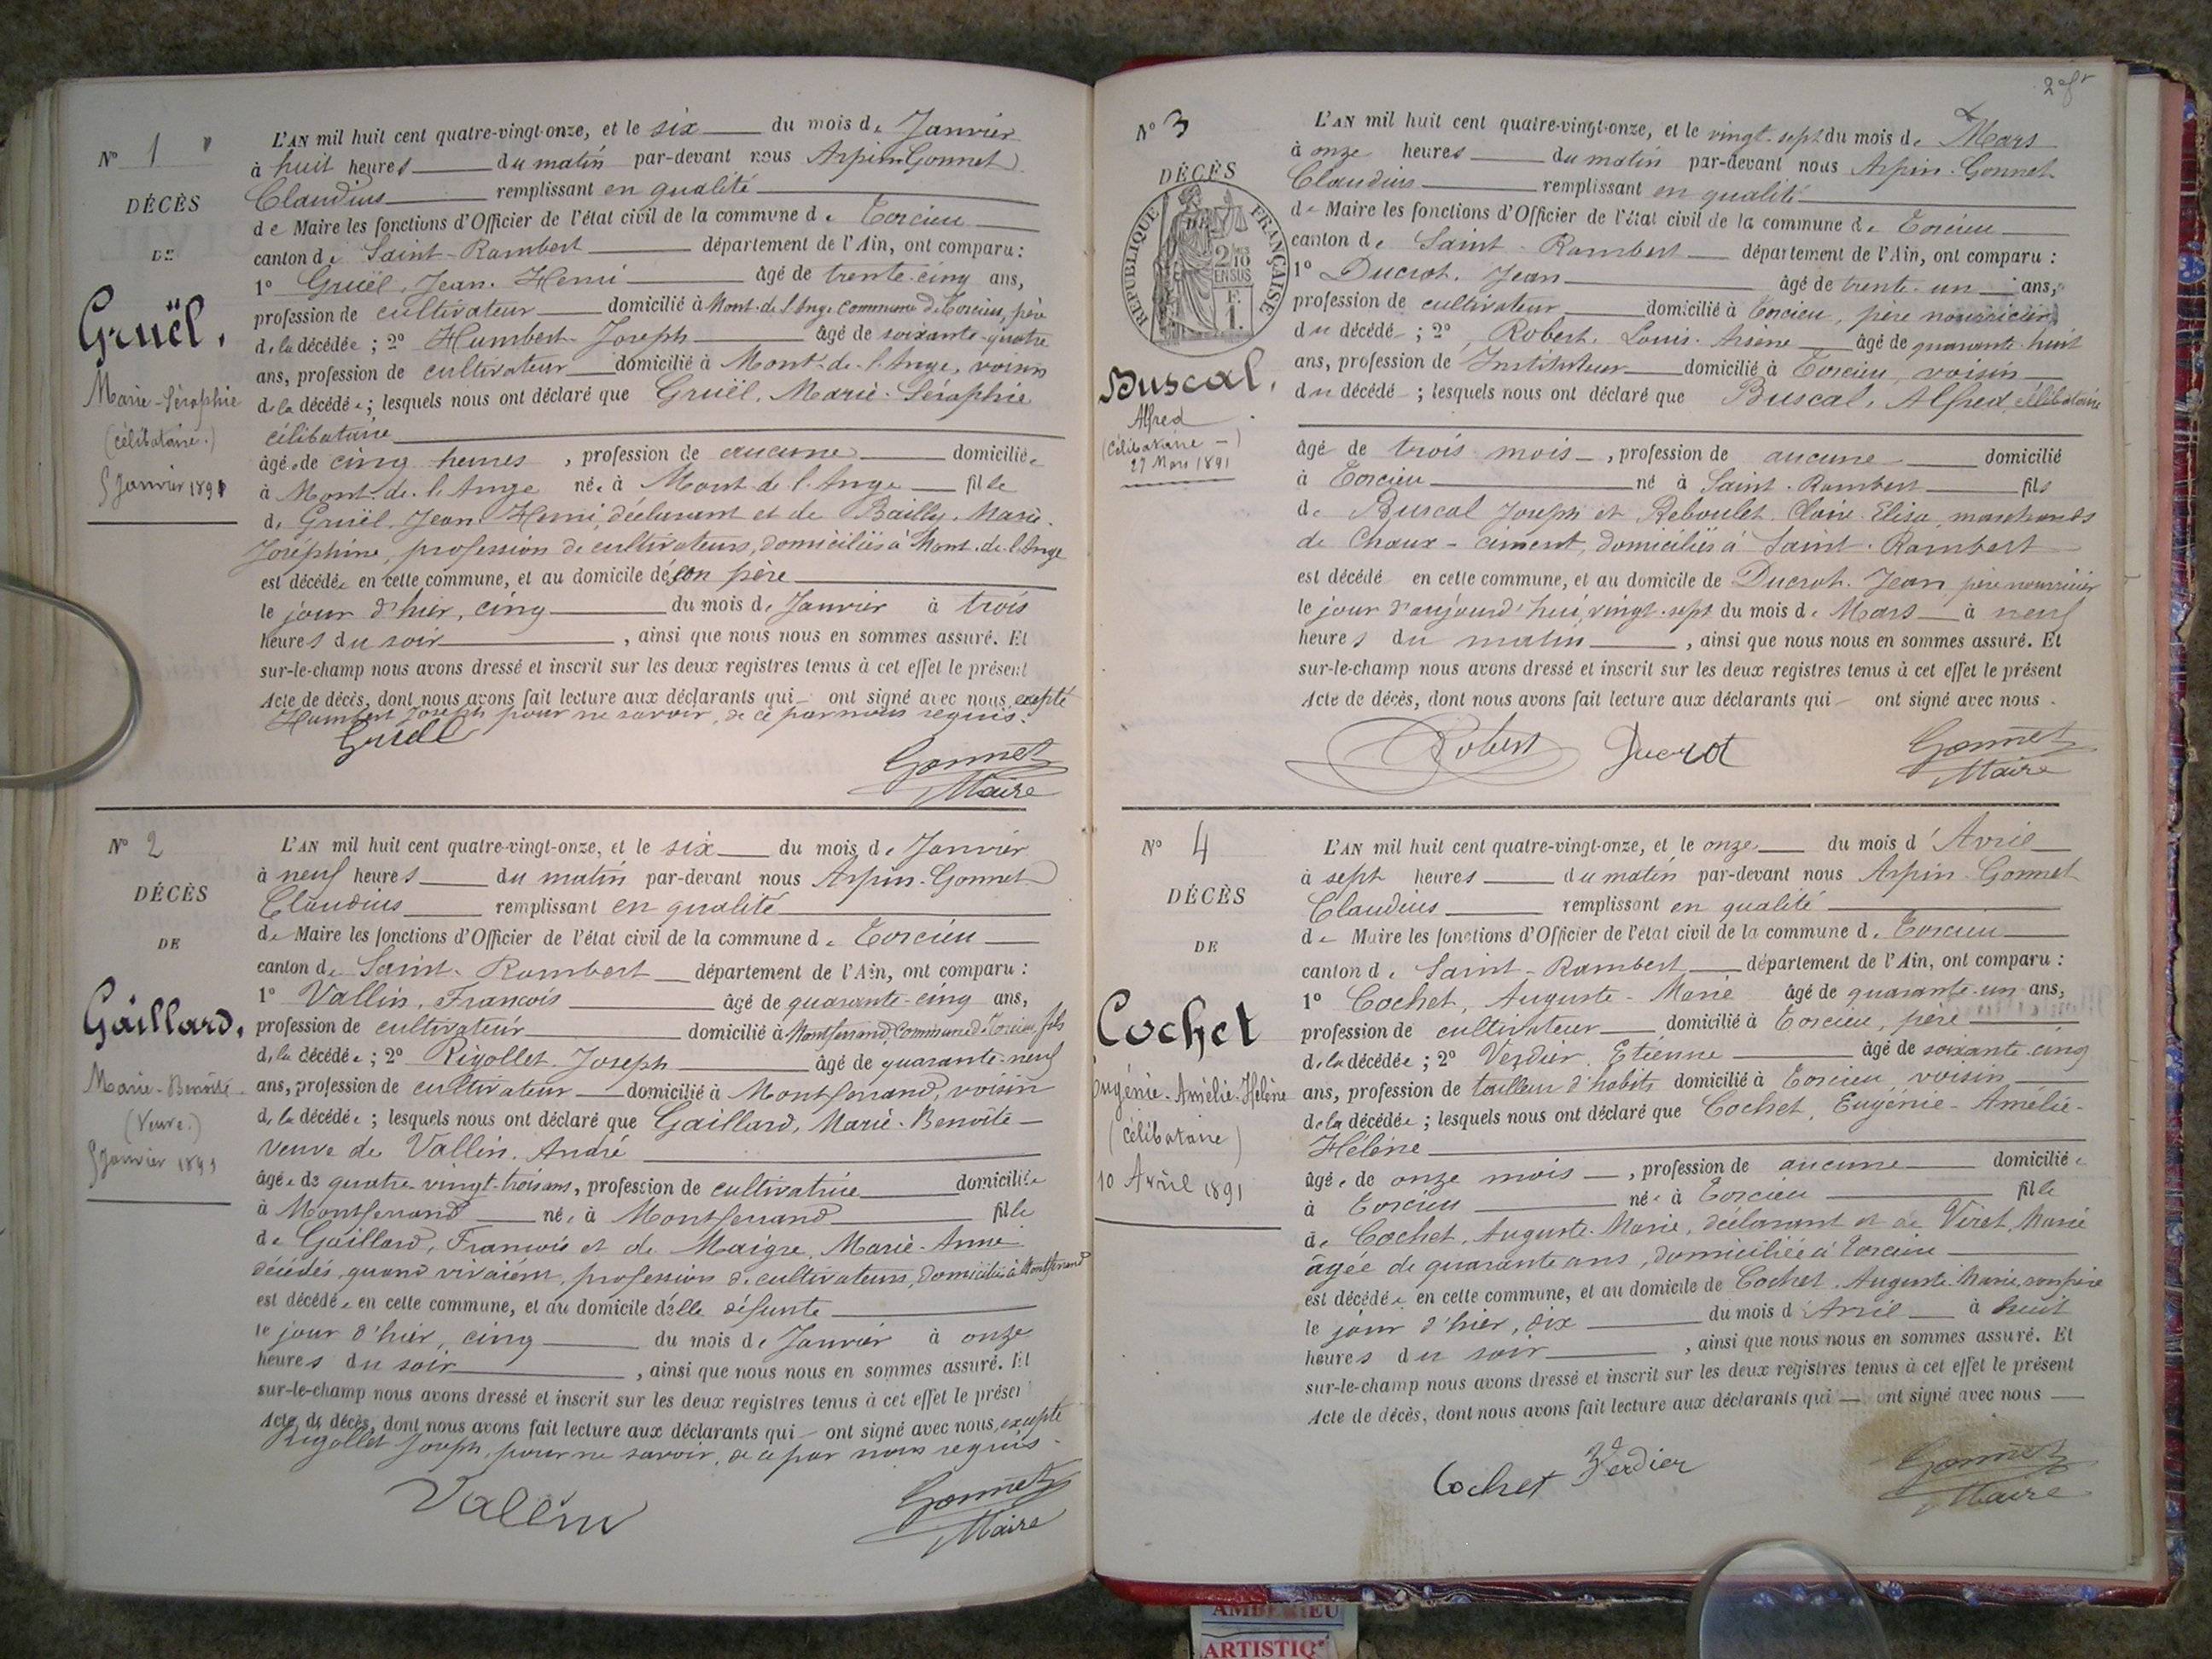 N° 1
DÉCÈS
DE
Gruël.
Marie-Séraphie
(célibataire.)
5 Janvier 1891
L'AN mil huit cent quatre-vingt-onze, et le six du mois de Janvier
à huit heures du matin par-devant nous Arpin-Gonnet
Claudius remplissant en qualité
de Maire les fonctions d'Officier de l'état civil de la commune de Torcieu
canton de Saint-Rambert département de l'Ain, ont comparu :
1° Gruël, Jean-Henri âgé de trente-cinq ans,
profession de cultivateur domicilié à Mont-de-l'Ange commune de Torcieu, père
de la décédée ; 2° Humbert Joseph âgé de soixante-quatre
ans, profession de cultivateur domicilié à Mont-de-l'Ange, voisin
de la décédée ; lesquels nous ont déclaré que Gruël, Marie-Séraphie
célibataire
âgée de cinq heures, profession de aucune domiciliée
à Mont-de-l'Ange née à Mont-de-l'Ange fille
de Gruël Jean-Henri, déclarant et de Bailly, Marie-
Joséphine, profession de cultivateurs, domiciliés à Mont-de-l'Ange
est décédée en cette commune, et au domicile de son père
le jour d'hier, cinq du mois de Janvier à trois
heures du soir, ainsi que nous nous en sommes assuré. Et
sur-le-champ nous avons dressé et inscrit sur les deux registres tenus à cet effet le présent
Acte de décès, dont nous avons fait lecture aux déclarants qui ont signé avec nous, excepté
Humbert Joseph pour ne savoir, de ce par nous requis.
Gruël
Gonnet
Maire
N° 2
DÉCÈS
DE
Gaillard.
Marie-Benoîte
(Veuve.)
5 Janvier 1891
L'AN mil huit cent quatre-vingt-onze, et le six du mois de Janvier
à neuf heures du matin par-devant nous Arpin-Gonnet
Claudius remplissant en qualité
de Maire les fonctions d'Officier de l'état civil de la commune de Torcieu
canton de Saint-Rambert département de l'Ain, ont comparu :
1° Vallin, François âgé de quarante-cinq ans,
profession de cultivateur domicilié à Montferrand, commune de Torcieu, fils
de la décédée ; 2° Rigollet Joseph âgé de quarante-neuf
ans, profession de cultivateur domicilié à Montferrand, voisin
de la décédée ; lesquels nous ont déclaré que Gaillard, Marie-Benoîte
veuve de Vallin, André
âgée de quatre-vingt-trois ans, profession de cultivatrice domiciliée
à Montferrand née à Montferrand fille
de Gaillard, François et de Maigre, Marie-Anne
décédés, quand vivaient, profession de cultivateurs, domiciliés à Montferrand
est décédée en cette commune, et au domicile d'elle défunte
le jour d'hier, cinq du mois de Janvier à onze
heures du soir, ainsi que nous nous en sommes assuré. Et
sur-le-champ nous avons dressé et inscrit sur les deux registres tenus à cet effet le présent
Acte de décès, dont nous avons fait lecture aux déclarants qui ont signé avec nous, excepté
Rigollet Joseph, pour ne savoir, de ce par nous requis.
Vallin
Gonnet
Maire
N° 3
DÉCÈS
DE
RÉPUBLIQUE FRANÇAISE
2/10 EN SUS
F. 1.
Buscal.
Alfred
(Célibataire)
27 Mars 1891
L'AN mil huit cent quatre-vingt-onze, et le vingt-sept du mois de Mars
à onze heures du matin par-devant nous Arpin-Gonnet
Claudius remplissant en qualité
de Maire les fonctions d'Officier de l'état civil de la commune de Torcieu
canton de Saint-Rambert département de l'Ain, ont comparu :
1° Ducrot, Jean âgé de trente-un ans,
profession de cultivateur domicilié à Torcieu, père nourricier
du décédé ; 2°, Robert, Louis-Arsène âgé de quarante-huit
ans, profession de Instituteur domicilié à Torcieu, voisin
du décédé ; lesquels nous ont déclaré que Buscal, Alfred, célibataire
âgé de trois mois, profession de aucune domicilié
à Torcieu né à Saint-Rambert fils
de Buscal Joseph et Reboulet, Claire-Elisa, marchands
de Chaux-ciment, domiciliés à Saint-Rambert
est décédé en cette commune, et au domicile de Ducrot, Jean, père nourricier
le jour d'aujourd'hui, vingt-sept du mois de Mars à neuf
heures du matin, ainsi que nous nous en sommes assuré. Et
sur-le-champ nous avons dressé et inscrit sur les deux registres tenus à cet effet le présent
Acte de décès, dont nous avons fait lecture aux déclarants qui ont signé avec nous.
Robert Ducrot
Gonnet
Maire
N° 4
DÉCÈS
DE
Cochet
Eugénie-Amélie-Hélène
(célibataire)
10 Avril 1891
L'AN mil huit cent quatre-vingt-onze, et le onze du mois d'Avril
à sept heures du matin par-devant nous Arpin-Gonnet
Claudius remplissant en qualité
de Maire les fonctions d'Officier de l'état civil de la commune de Torcieu
canton de Saint-Rambert département de l'Ain, ont comparu :
1° Cochet, Auguste-Marie âgé de quarante-un ans,
profession de cultivateur domicilié à Torcieu, père
de la décédée ; 2° Verdier, Etienne âgé de soixante-cinq
ans, profession de tailleur d'habits domicilié à Torcieu, voisin
de la décédée ; lesquels nous ont déclaré que Cochet, Eugénie-Amélie-
Hélène
âgée de onze mois, profession de aucune domiciliée
à Torcieu née à Torcieu fille
de Cochet, Auguste-Marie, déclarant et de Viret, Marie
âgée de quarante ans, domiciliée à Torcieu
est décédée en cette commune, et au domicile de Cochet, Auguste-Marie, son père
le jour d'hier, dix du mois d'Avril à huit
heures du soir, ainsi que nous nous en sommes assuré. Et
sur-le-champ nous avons dressé et inscrit sur les deux registres tenus à cet effet le présent
Acte de décès, dont nous avons fait lecture aux déclarants qui ont signé avec nous
Cochet Verdier
Gonnet
Maire
AMBERIEU
ARTISTIQ